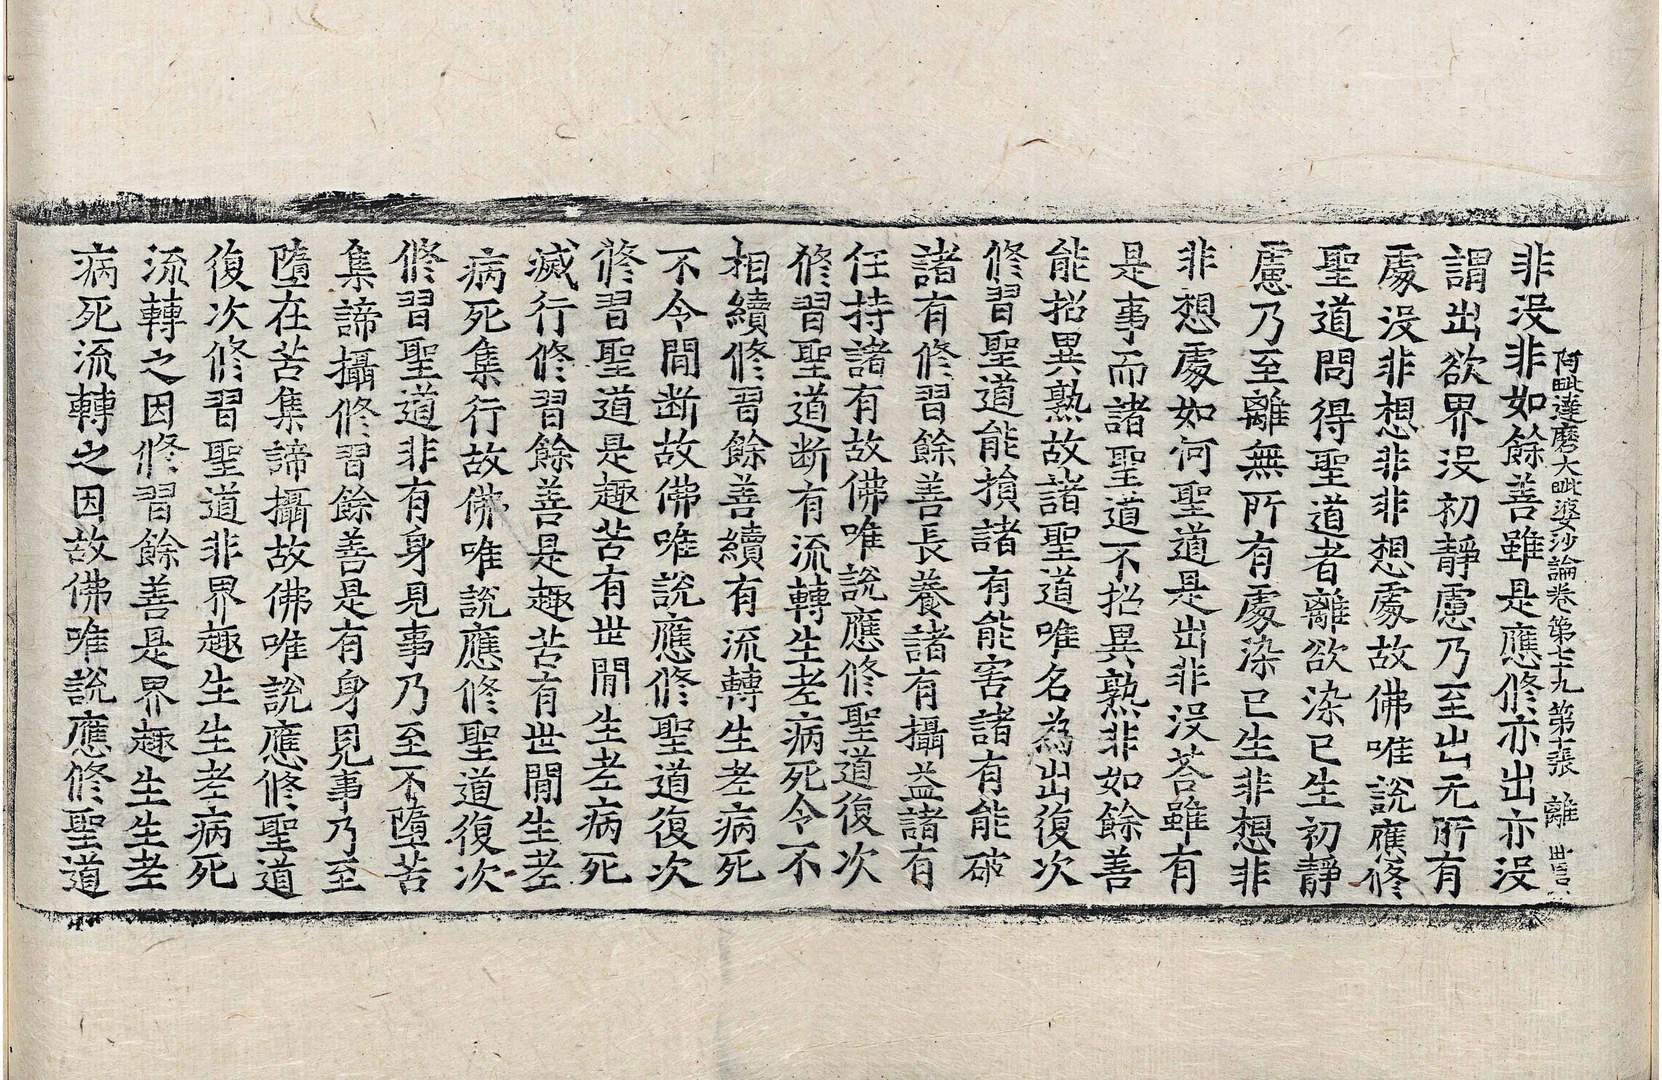 阿毗達磨大毗婆沙論卷第七十九第十張 離
非沒非如餘善雖是應修亦出亦沒
謂出欲界沒初靜慮乃至出无所有
處沒非想非非想處故佛唯說應修
聖道問得聖道者離欲染已生初靜
慮乃至離無所有處染已生非想非
非想處如何聖道是出非沒荅雖有
是事而諸聖道不招異熟非如餘善
能招異熟故諸聖道唯名為出復次
修習聖道能損諸有能害諸有能破
諸有修習餘善長養諸有攝益諸有
任持諸有故佛唯說應修聖道復次
修習聖道断有流轉生老病死令不
相續修習餘善續有流轉生老病死
不令閒断故佛唯說應修聖道復次
修習聖道是趣苦有世閒生老病死
滅行修習餘善是趣苦有世閒生老
病死集行故佛唯說應修聖道復次
修習聖道非有身見事乃至不墮苦
集諦攝修習餘善是有身見事乃至
墮在苦集諦攝故佛唯說應修聖道
復次修習聖道非界趣生生老病死
流轉之因修習餘善是界趣生生老
病死流轉之因故佛唯說應修聖道